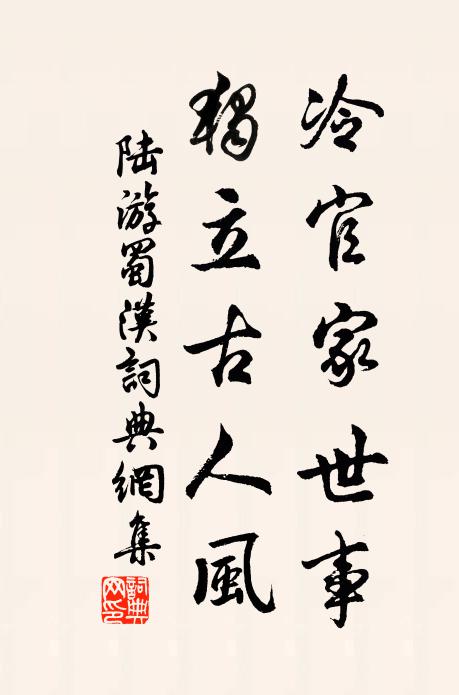 冷官家世事
獨立古人風
陆游蜀漢詞典網集
詞典
网印